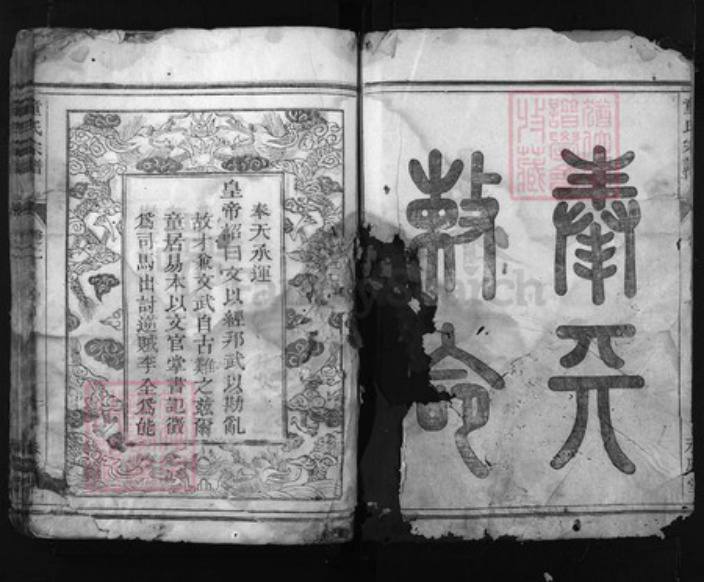 奉天
敕命
奉天承運
皇帝詔曰文以經邦武以勘亂
故才兼文武自古難之茲爾
童居易本以文官掌書記徵
為司馬出討逆賊李全為能
童氏宗譜
卷二
FamilySearch